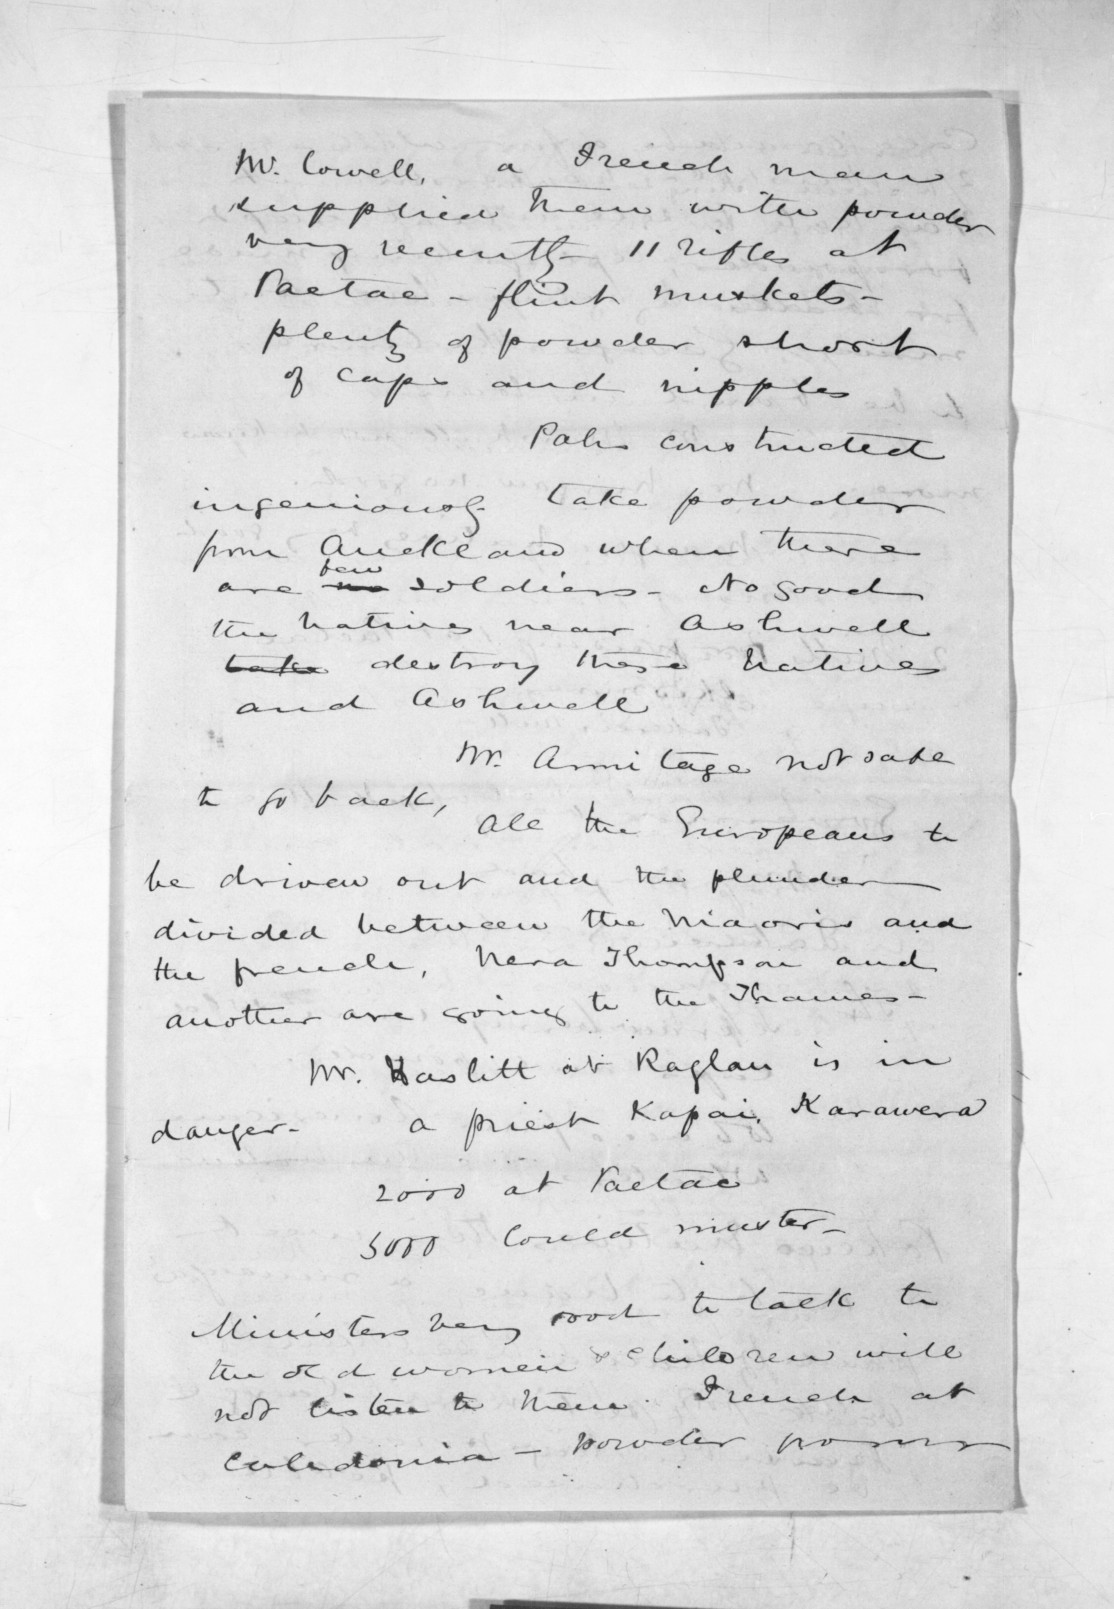 Mr. Cowell, a French man
supplied them with powder
very recently - 11 rifles at
Paetae - flint muskets -
plenty of powder short
of caps and nipples
Pahs constructed
ingeniously take powder
from Auckland when there
are no few soldiers - No good
the natives near Ashwell
take destroy these natives
and Ashwell
Mr. Armitage not safe
to go back,
All the Europeans to
be driven out and the plunder
divided between the Maoris and
the french, Thompson and
another are going to the Thames -
Mr. Haslitt at Raglan is in
danger - a priest Kapai, Karawera
2000 at Paetae
5000 could muster -
Ministers very good to talk to
the old women & children will
not listen to them. French at
Caledonia - powder